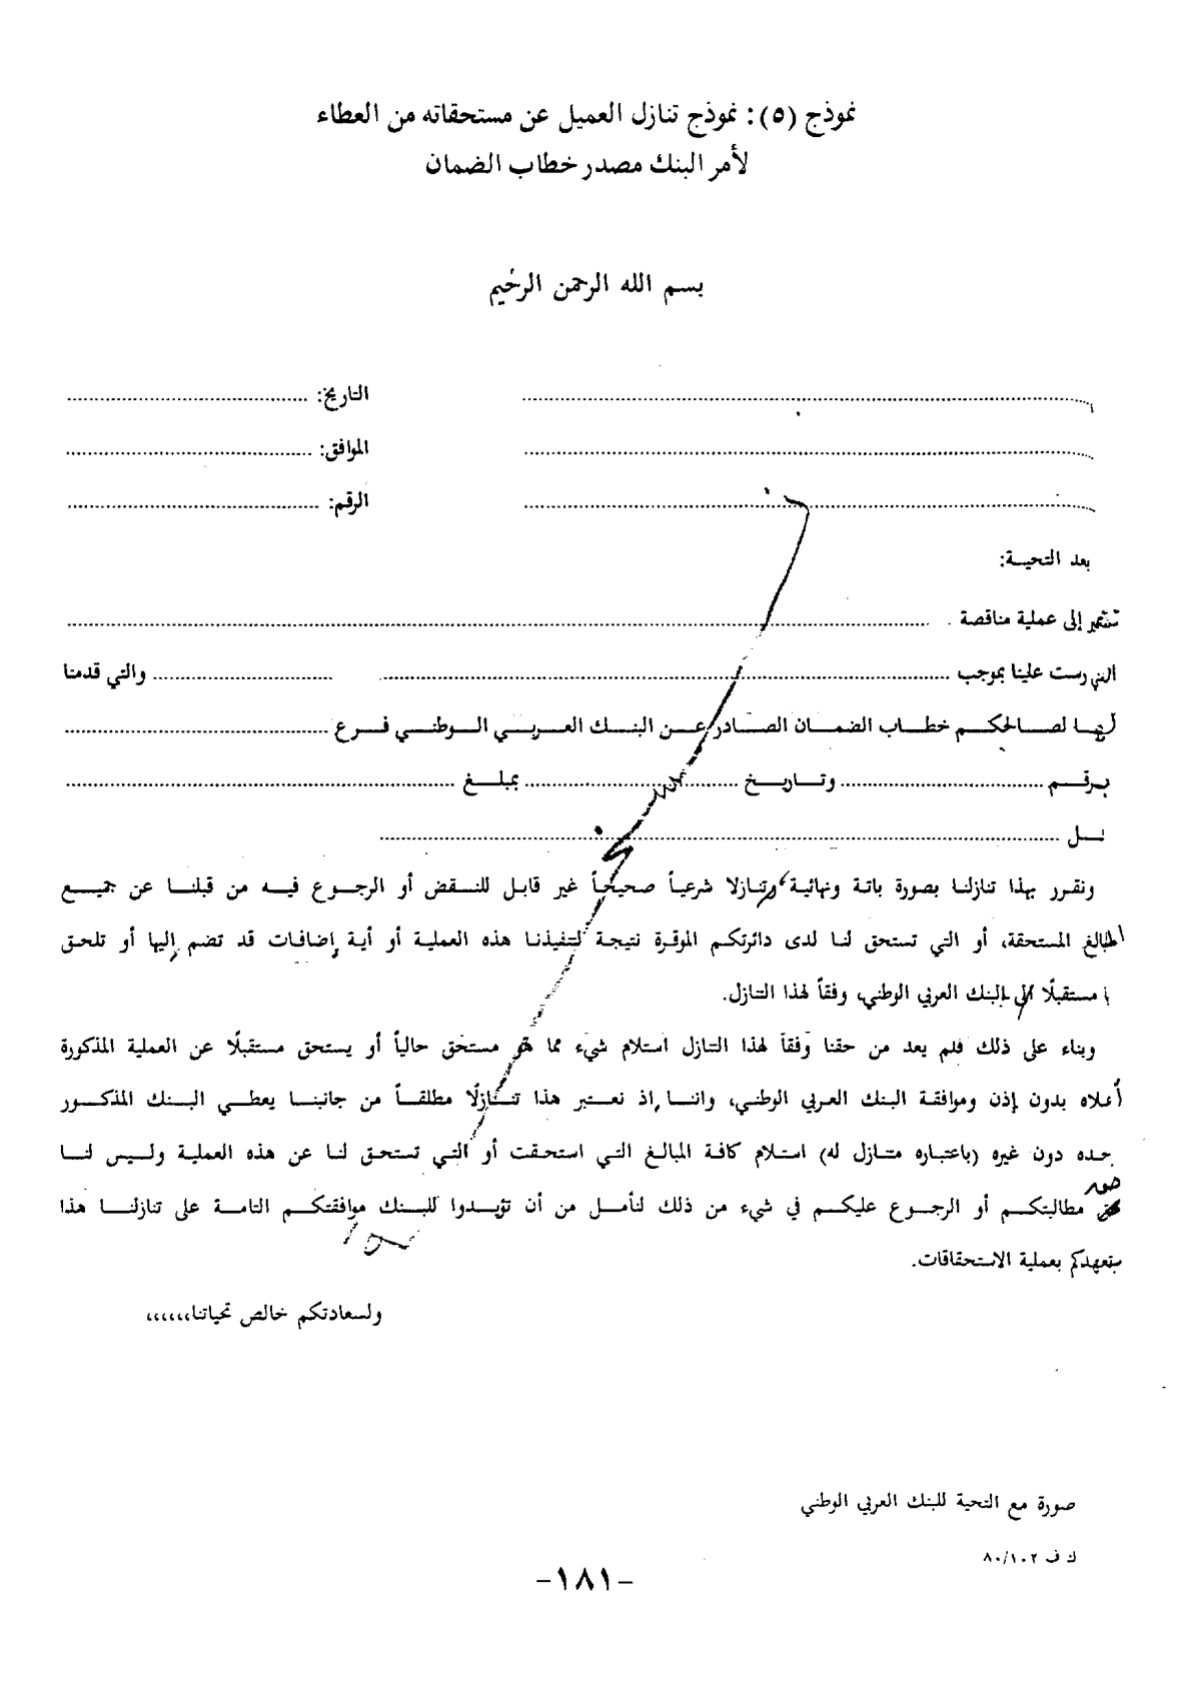 نموذج (٥): نموذج تنازل العميل عن مستحقاته من العطاء
لأمر البنك مصدر خطاب الضمان
بسم الله الرحمن الرحيم
التاريخ: ........................
الموافق: ........................
الرقم: ........................
بعد التحية:
نشير إلى عملية مناقصة ........................
التي رست علينا بموجب ........................ والتي قدمنا
لصالحكم خطاب الضمان الصادر عن البنك العربي الوطني فرع ........................
برقم ........................ وتاريخ ........................ بمبلغ ........................
........................
ونقرر بهذا تنازلنا بصورة باتة ونهائية وتنازلا شرعياً صحيحاً غير قابل للنقض أو الرجوع فيه من قبلنا عن جميع
المبالغ المستحقة، أو التي تستحق لنا لدى دائرتكم الموقرة نتيجة لتنفيذنا هذه العملية أو أية إضافات قد تضم إليها أو تلحق
مستقبلًا إلى البنك العربي الوطني، وفقاً لهذا التنازل.
وبناء على ذلك فلم يعد من حقنا وفقاً لهذا التنازل استلام شيء مما هو مستحق حالياً أو يستحق مستقبلًا عن العملية المذكورة
أعلاه بدون إذن وموافقة البنك العربي الوطني، واننا إذ نعتبر هذا تنازلًا مطلقاً من جانبنا يعطي البنك المذكور
حده دون غيره (باعتباره متنازل له) استلام كافة المبالغ التي استحقت أو التي تستحق لنا عن هذه العملية وليس لنا
مطالبتكم أو الرجوع عليكم في شيء من ذلك لنأمل من أن تؤيدوا للبنك موافقتكم التامة على تنازلنا هذا
بتعهدكم بعملية الاستحقاقات.
ولسعادتكم خالص تحياتنا،،،،،،
صورة مع التحية للبنك العربي الوطني
ك ف ٨٠/١٠٢
-١٨١-